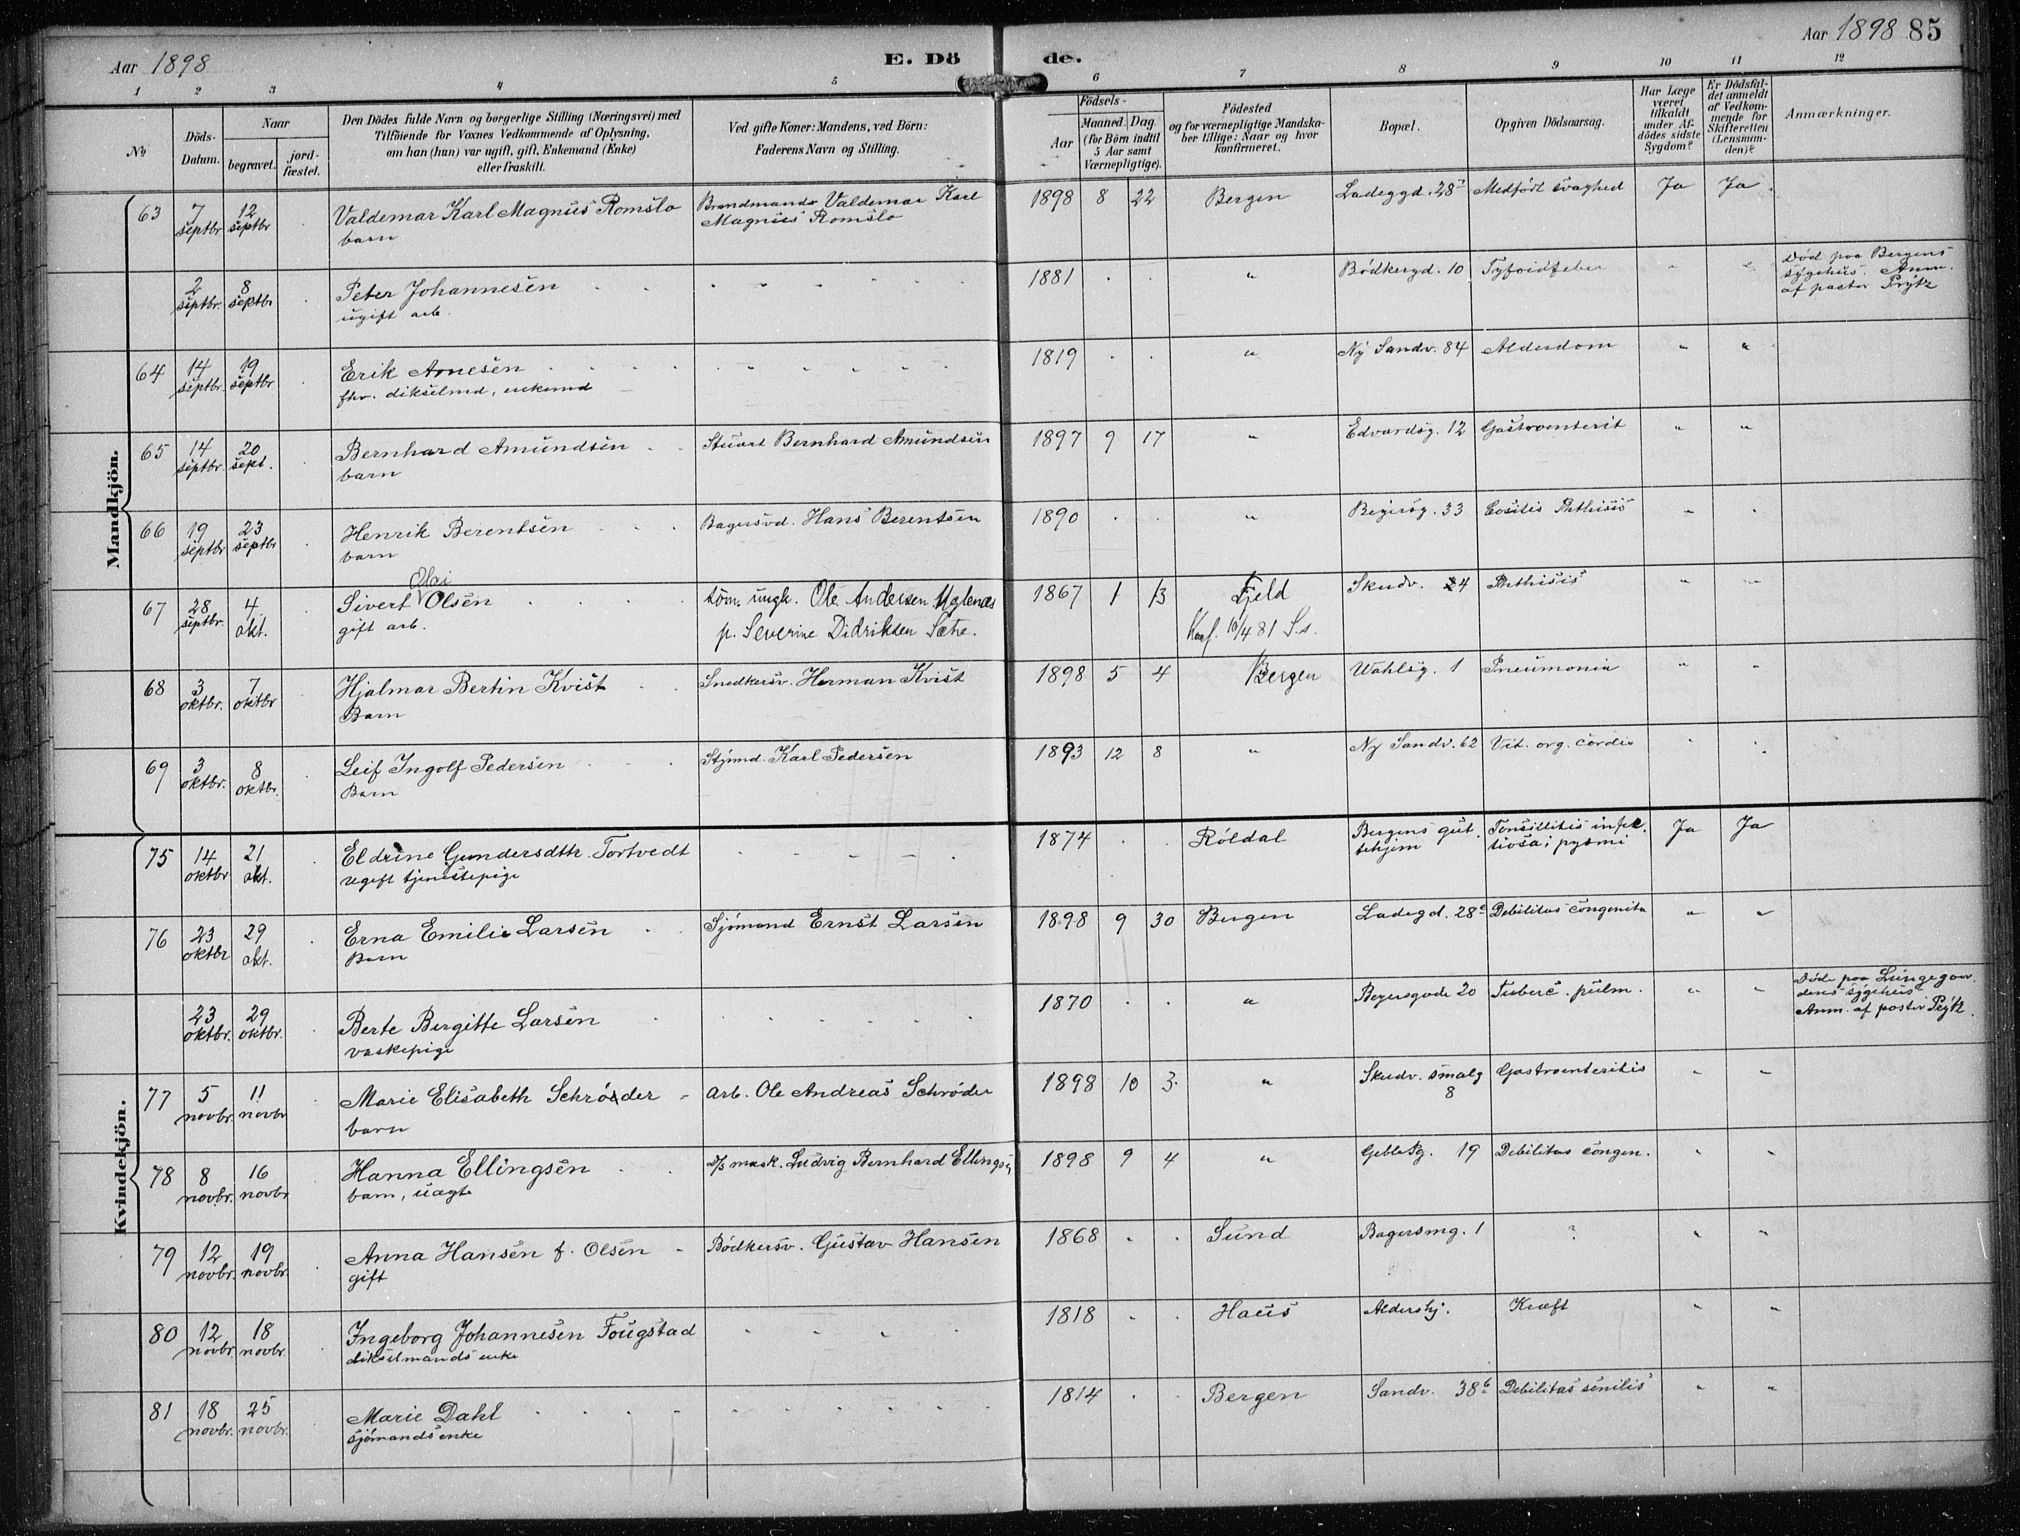 Aar 1898 E. Dö de. Aar 1898 85
1 2 3 4 5 6 7 8 9 10 11 12
№
Döds-Datum.
Naar
begravet.
jord-fæstet.
Den Dödes fulde Navn og borgerlige Stilling (Næringsvei) med
Tilföiende for Voxnes Vedkommende af Oplysning,
om han (hun) var ugift, gift, Enkemand (Enke)
eller fraskilt.
Ved gifte Koner: Mandens, ved Börn:
Faderens Navn og Stilling.
Födsels-
Aar
Maaned. Dag.
(for Börn indtil
5 Aar samt
Værnepligtige).
Födested
og for værnepligtige Mandska-
ber tillige: Naar og hvor
konfirmeret.
Bopæl.
Opgiven Dödsaarsag.
Har Læge
været
tilkaldt
under Af-
dödes sidste
Sygdom?
Er Dödsfal-
det anmeldt
af Vedkom-
mende for
Skifteretten
(Lensman-
den)?
Anmærkninger.
Mandkjön.
63 7 septbr 12 septbr Valdemar Karl Magnus Romslo Brandmands Valdemar Karl 1898 8 22 Bergen Ladeggd. 28 Medfödt svaghed Ja Ja
barn Magnus Romslo
2 septbr. 8 septbr Peter Johannesen 1881 " Bödkergd. 10 Tyfoidfeber " " Död paa Bergens
ugift arb. sygehus. Anm.
af pastor Prytz
64 14 septbr 19 septbr Erik Arnesen 1819 " Ny Sandv. 84 Alderdom " "
fhv. dikselmd, enkemd
65 14 septbr. 20 sept. Bernhard Amundsen Stuart Bernhard Amundsen 1897 9 17 " Edvardsg. 12 Gastroenterit " "
barn
66 19 septbr 23 septbr Henrik Berentsen Bagersvd. Hans Berentsen 1890 " 33 Phthisis "
barn
67 28 septbr. 4 okt. Sivert Olai Olsen töm. ungk. Ole Andersen 1867 1 13 Fjeld Skudv. 24 Phthisis " "
gift arb. p. Severine Didriksen Sætre. Konf. 10/4 81 S.s.
68 3 oktbr. 7 oktbr Hjalmar Bertin Kvist Snedkersv. Herman Kvist 1898 5 4 Bergen Wahlsg. 1 Pneumonia " "
Barn
69 3 oktbr. 8 oktbr. Leif Ingolf Pedersen Styrmd. Karl Pedersen 1893 12 8 " Ny Sandv. 62 Vit. org. cordis
Barn
Kvindekjön.
75 14 oktbr 21 okt. Eldrine Gundersdtr. Tortvedt 1874 Röldal Bergens gut Tonsillitis infec Ja Ja
ugift tjenestepige tehjem tiosa; pyæmi
76 23 oktbr 29 okt. Erna Emilie Larsen Sjömand Ernst Larsen 1898 9 30 Bergen Ladegd. 28 Debilitas congenita " "
Barn
23 oktbr. 29 oktbr. Berte Bergitte Larsen 1870 " 20 Tuberc. pulm. " " Död paa Lungegaar
vaskepige dens sygehus
Anm. af pastor Prytz.
77 5 novbr. 11 novbr Marie Elisabeth Schröder arb. Ole Andreas Schröder 1898 10 3 " Skudv. smalg 8 Gastroenteritis " "
barn
78 8 novbr. 16 novbr Hanna Ellingsen D/s mask. Ludvig Bernhard Ellingsen 1898 9 4 " 19 Debilitas congen. " "
barn, uægte
79 12 novbr. 19 novbr. Anna Hansen f. Olsen Bödkersv. Gustav Hansen 1868 Sund Bagersmg. 1 ? " "
gift
80 12 novbr. 18 novbr. Ingeborg Johannesen Fougstad 1818 Haus Aldershj. Kræft " "
dikselmands enke
81 18 novbr. 25 novbr. Marie Dahl 1814 Bergen Sandv. 38b Debilitas senilis " "
sjömands enke